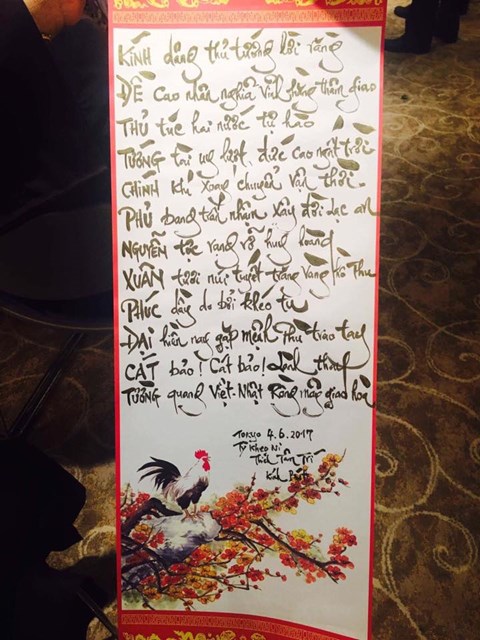 KÍNH dâng thủ tướng lời rằng
ĐỀ cao nhân nghĩa vĩnh hằng thâm giao
THỦ túc hai nước tự hào
TƯỚNG tài uy liệt đức cao ngất trời
CHÍNH khí xoay chuyển vận thời
PHỦ bang tấn nhân xây đời lạc an
NGUYỄN tộc rạng rỡ huy hoàng
XUÂN tươi núi tuyết trăng vàng hồ Thu
PHÚC dầy do bởi khéo tu
ĐẠI hiền nay gặp mệnh Phù trao tay
CÁT bảo! Cát bảo! Lành thay
TƯỜNG quang Việt-Nhật Rồng mây giao hòa
TOKYO 4.6.2017
Tỳ Kheo Ni
Thích Tâm Trí
Kính Bút